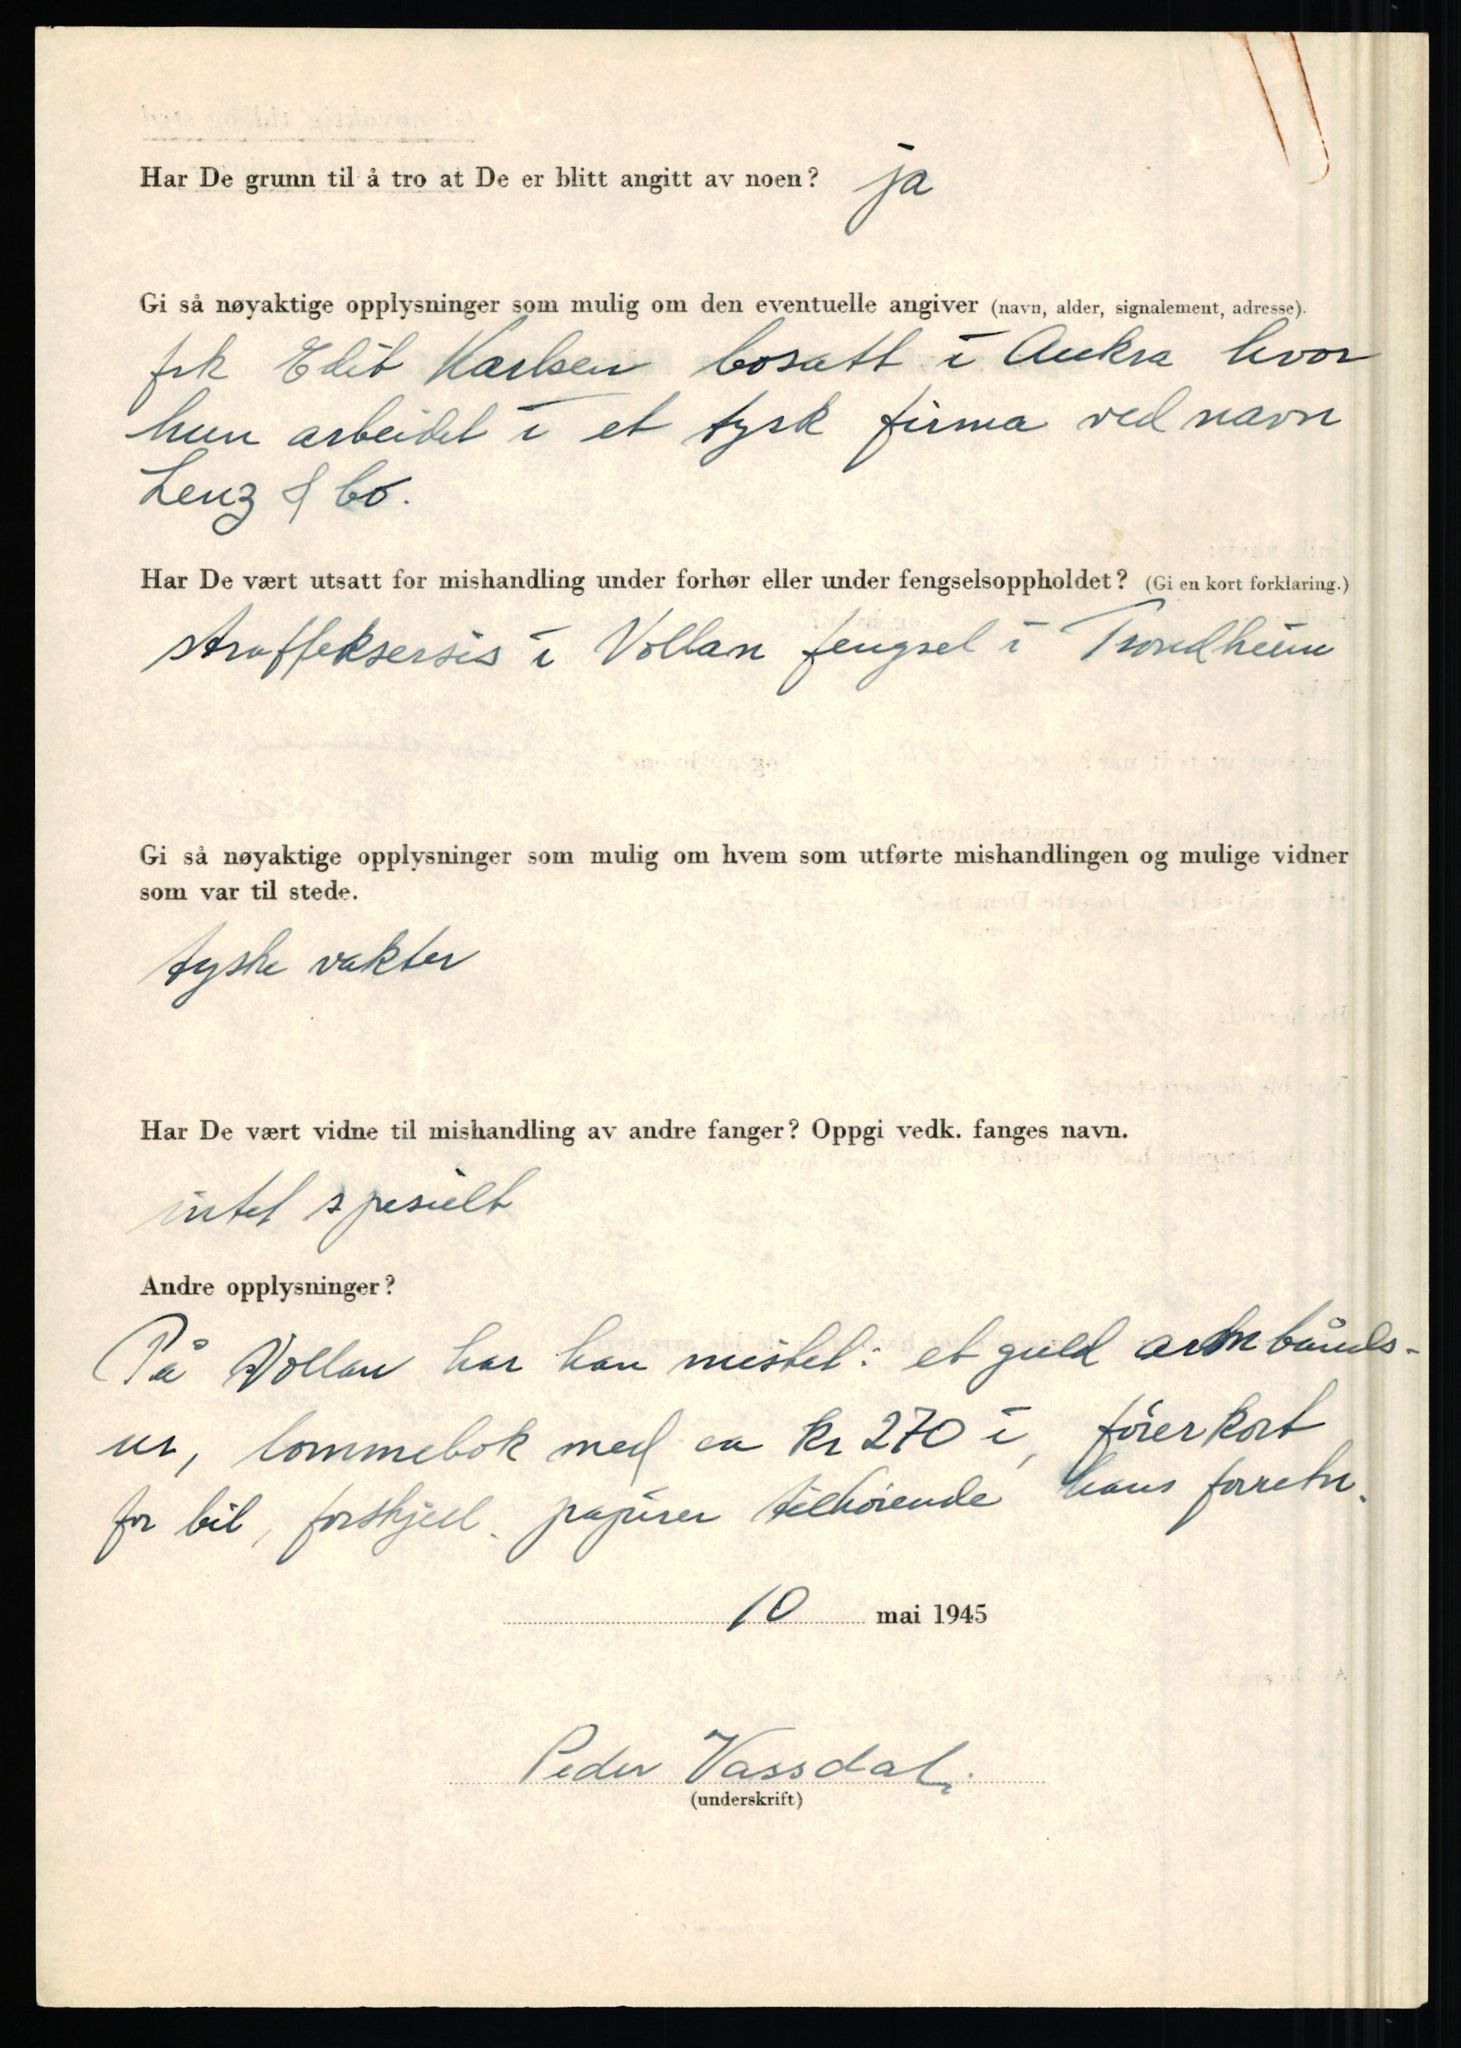 Har De grunn til å tro at De er blitt angitt av noen? ja
Gi så nøyaktige opplysninger som mulig om den eventuelle angiver (navn, alder, signalement, adresse).
frk Edit Karlsen bosatt i Aukra hvor
hun arbeidet i et tysk firma ved navn
Lenz & Co.
Har De vært utsatt for mishandling under forhør eller under fengselsoppholdet? (Gi en kort forklaring.)
straffeksersis i Vollan fengsel i Trondheim
Gi så nøyaktige opplysninger som mulig om hvem som utførte mishandlingen og mulige vidner
som var til stede.
tyske vakter
Har De vært vidne til mishandling av andre fanger? Oppgi vedk. fanges navn.
intet spesielt
Andre opplysninger?
På Vollan har han mistet: et guld armbånds-
ur, lommebok med ca kr 270 i, förerkort
for bil, forskjell. papirer tilhörende hans forretn.
10 mai 1945
Peder Vassdal.
(underskrift)